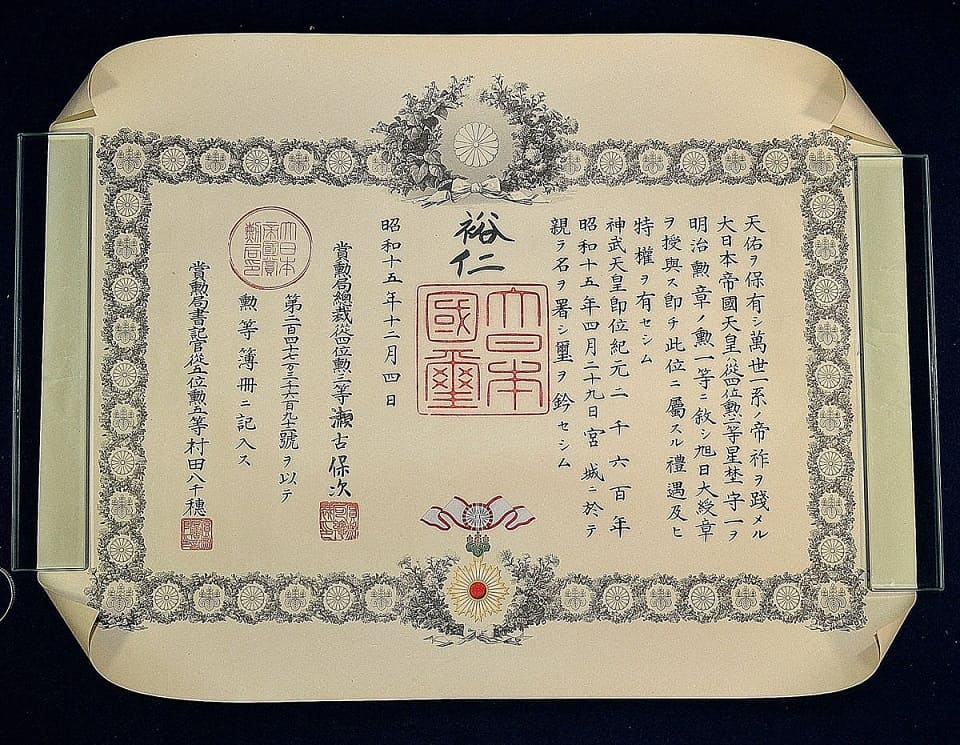 天佑ヲ保有シ萬世一系ノ帝祚ヲ踐メル
大日本帝國天皇ハ從四位勲二等星埜守一ヲ
明治勲章ノ勲一等ニ敘シ旭日大綬章
ヲ授與ス即チ此位ニ屬スル禮遇及ヒ
特權ヲ有セシム
神武天皇即位紀元二千六百年
昭和十五年四月二十九日宮城ニ於テ
親ラ名ヲ署シ璽ヲ鈐セシム
裕仁
大日本
國璽
昭和十五年十二月四日
賞勲局總裁從四位勲三等瀬古保次
第二百四十七万三千六百九十一號ヲ以テ
勲等簿冊ニ記入ス
賞勲局書記官從五位勲五等村田八千穂